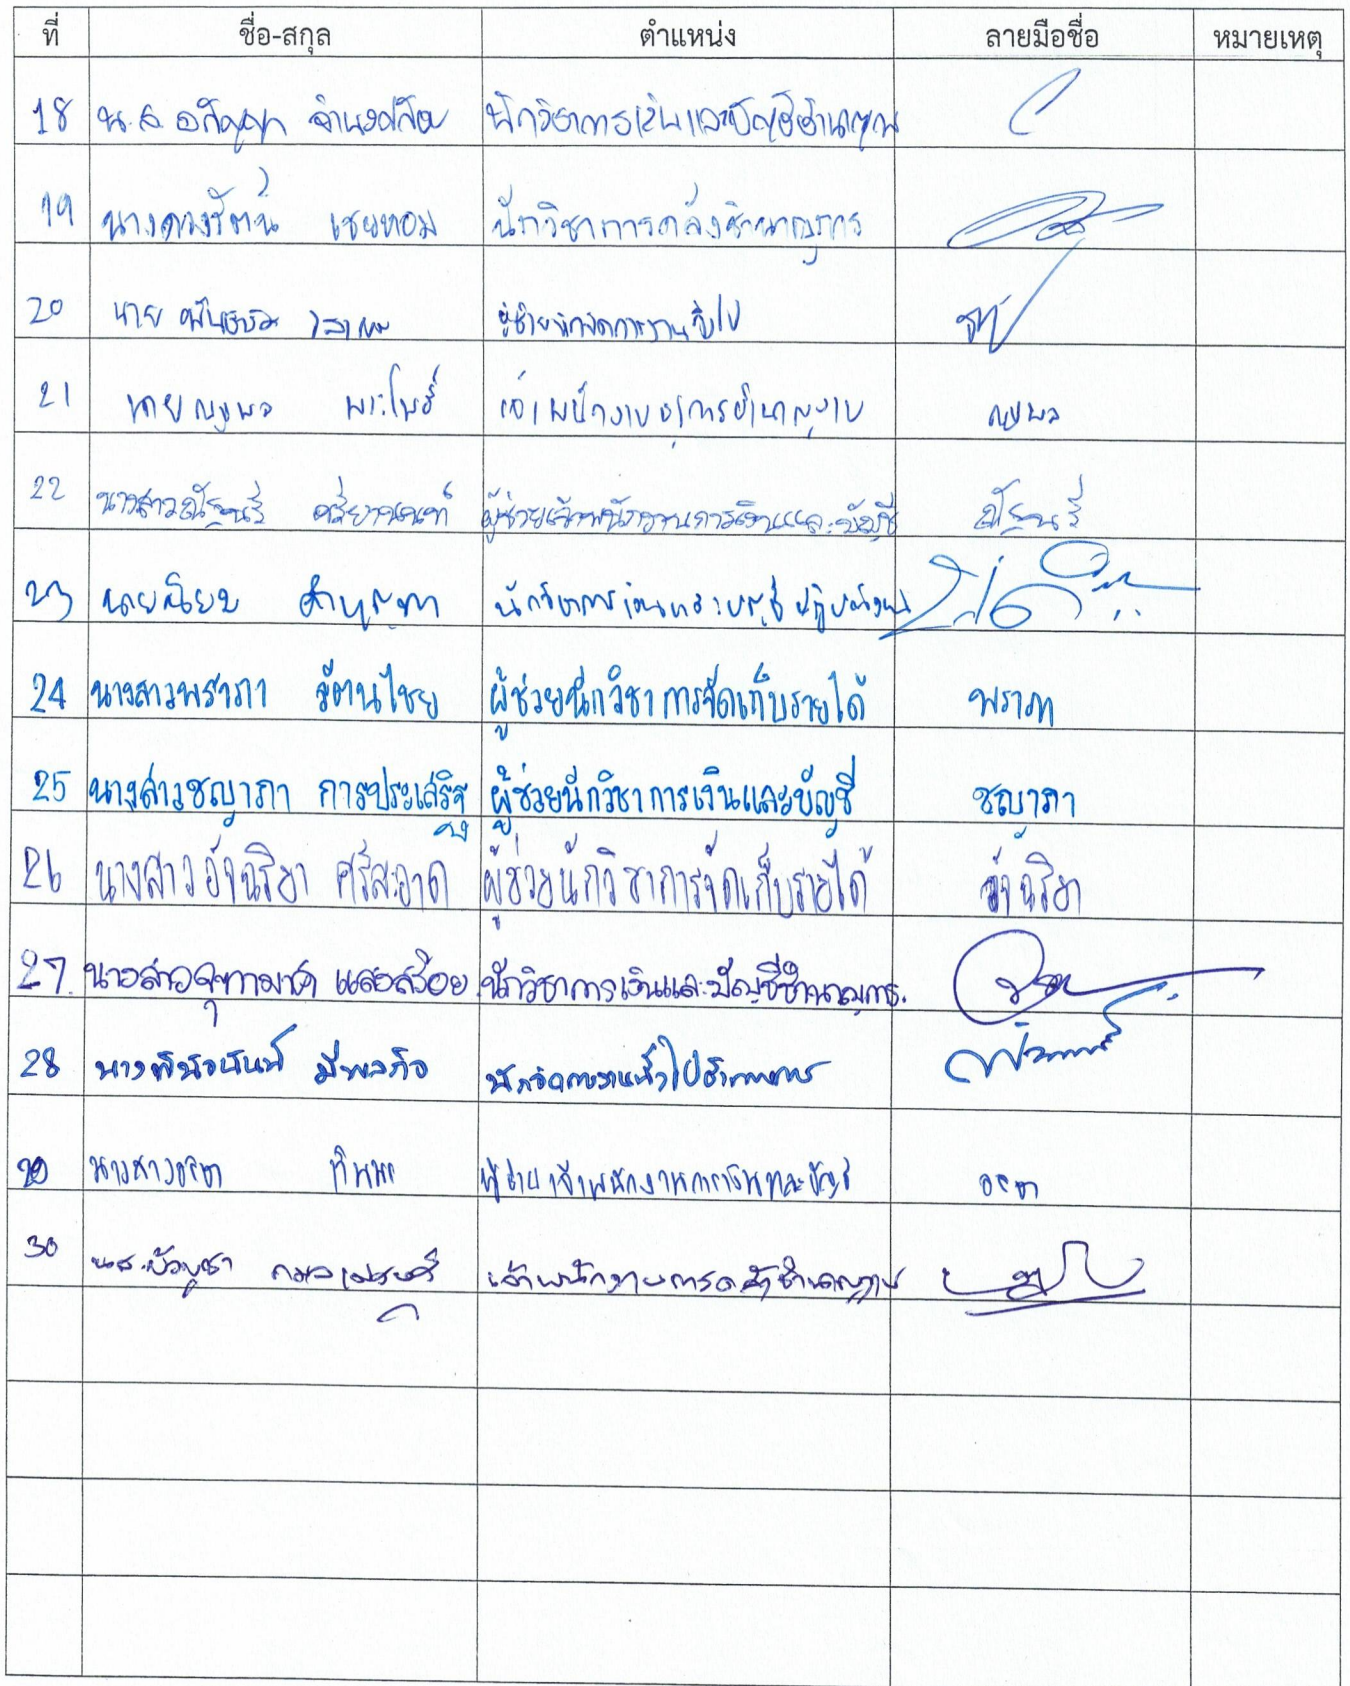 ที่ ชื่อ-สกุล ตำแหน่ง ลายมือชื่อ หมายเหตุ
18 น.ส. นักวิชาการเงินและบัญชีชำนาญการ
19 นางดวงรัตน์ เชยหอม นักวิชาการคลังชำนาญการ
20 นาย ผู้ช่วยนักจัดการงานทั่วไป
21 นาย พระโพธิ์ เจ้าพนักงานธุรการชำนาญงาน
22 นางสาวณัฐนรี ศรียานนท์ ผู้ช่วยเจ้าพนักงานการเงินและบัญชี ณัฐนรี
23 นาย นักวิชาการเงินและบัญชี
24 นางสาวพราภา รัตนไชย ผู้ช่วยนักวิชาการจัดเก็บรายได้ พราภา
25 นางสาวชญาภา การประเสริฐ ผู้ช่วยนักวิชาการเงินและบัญชี ชญาภา
26 นางสาวอัจฉริยา ศรีสะอาด ผู้ช่วยนักวิชาการจัดเก็บรายได้ อัจฉริยา
27. นางสาวจุฑามาศ แสงสร้อย นักวิชาการเงินและบัญชีชำนาญการ.
28 นาง มีพลกิจ นักจัดการงานทั่วไปชำนาญการ
29 นางสาวอรชา ทินนะ ผู้ช่วยเจ้าพนักงานการเงินและบัญชี อรชา
30 น.ส. บัวบูชา เจ้าพนักงานการคลังชำนาญงาน